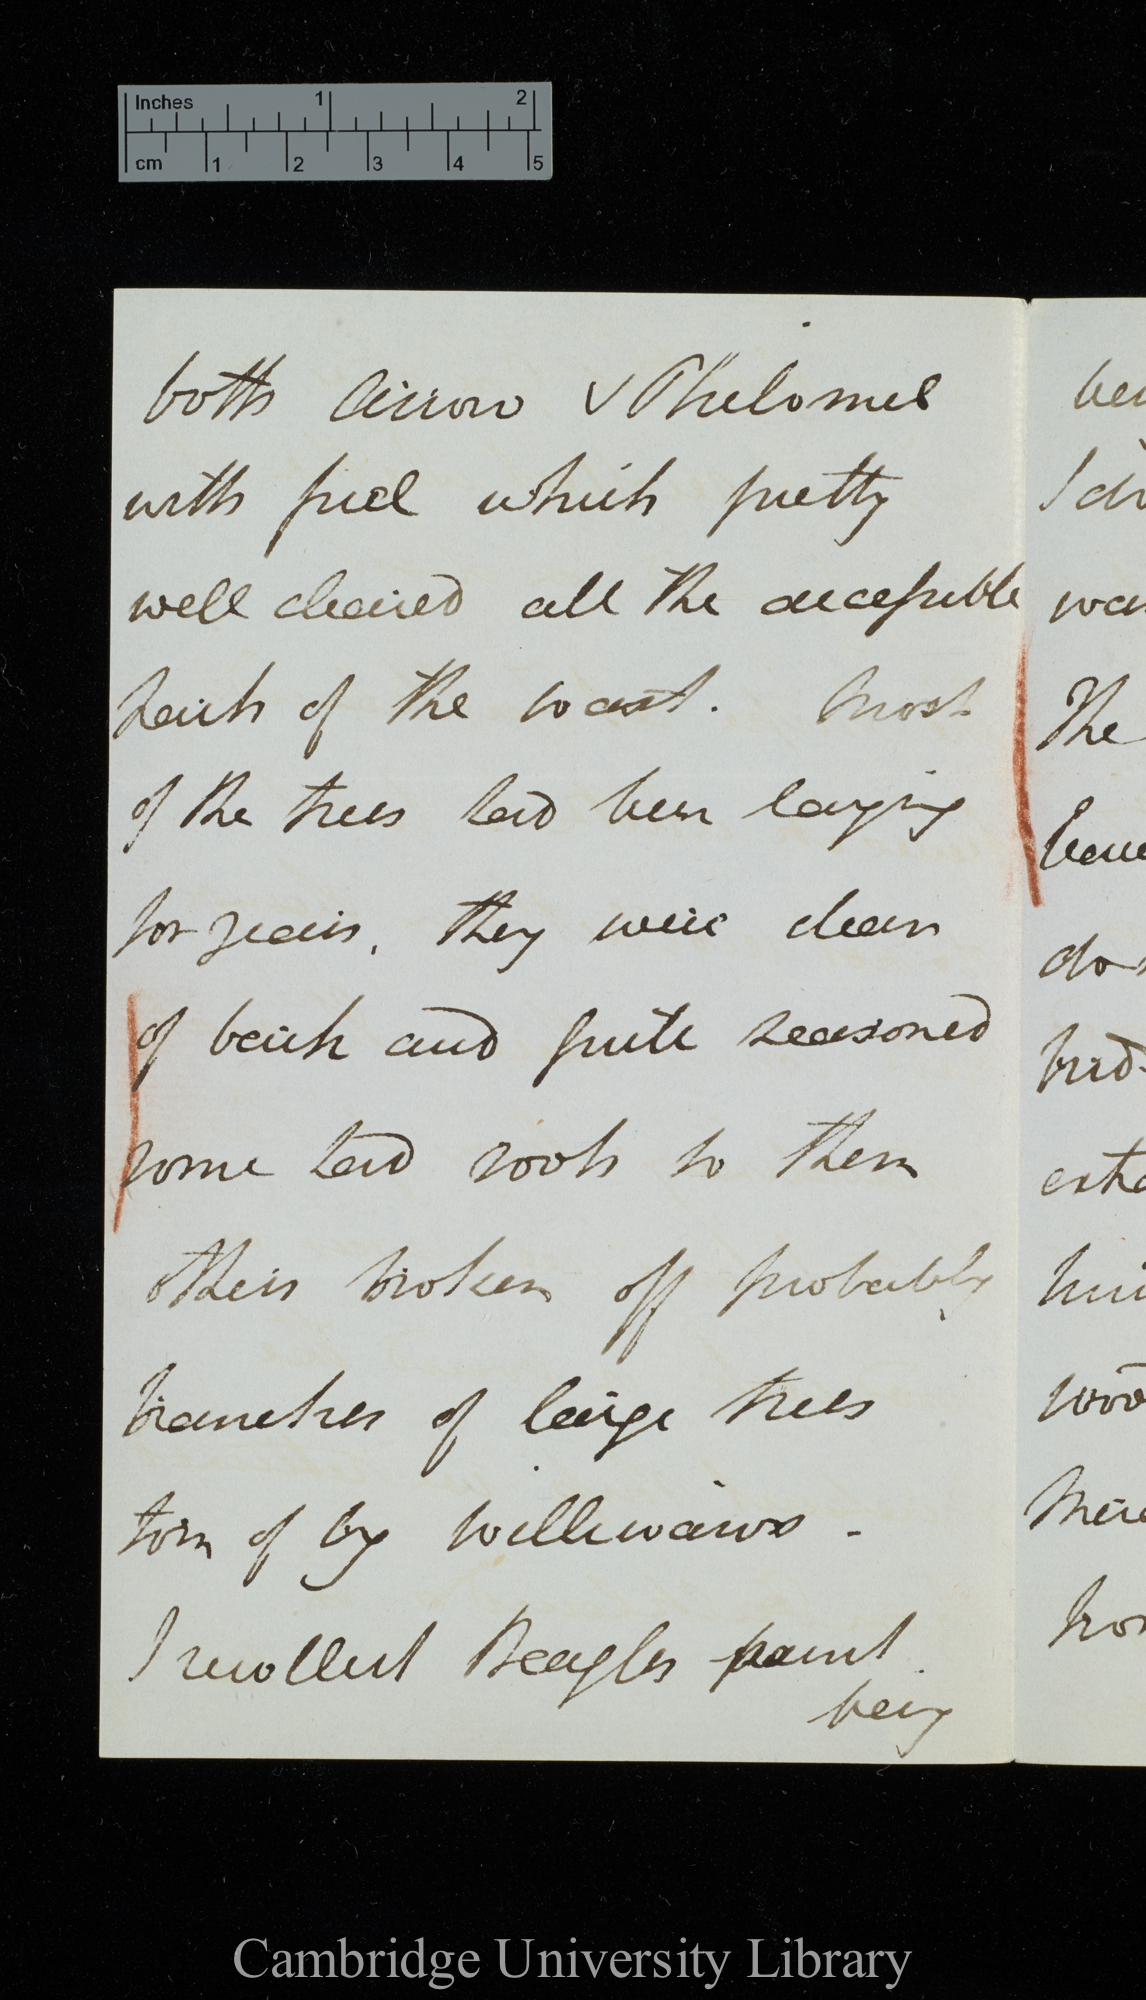 Inches 1 2
cm 1 2 3 4 5
both Arrow & Philomel
with fuel which pretty
well cleared all the accessible
parts of the coast. Most
of the trees had been laying
for years, they were clean
of bark and quite seasoned
some had roots to them
others broken off probably
branches of large trees
torn of by williwaws -
I recollect Beagles paint
being
The
Cambridge University Library